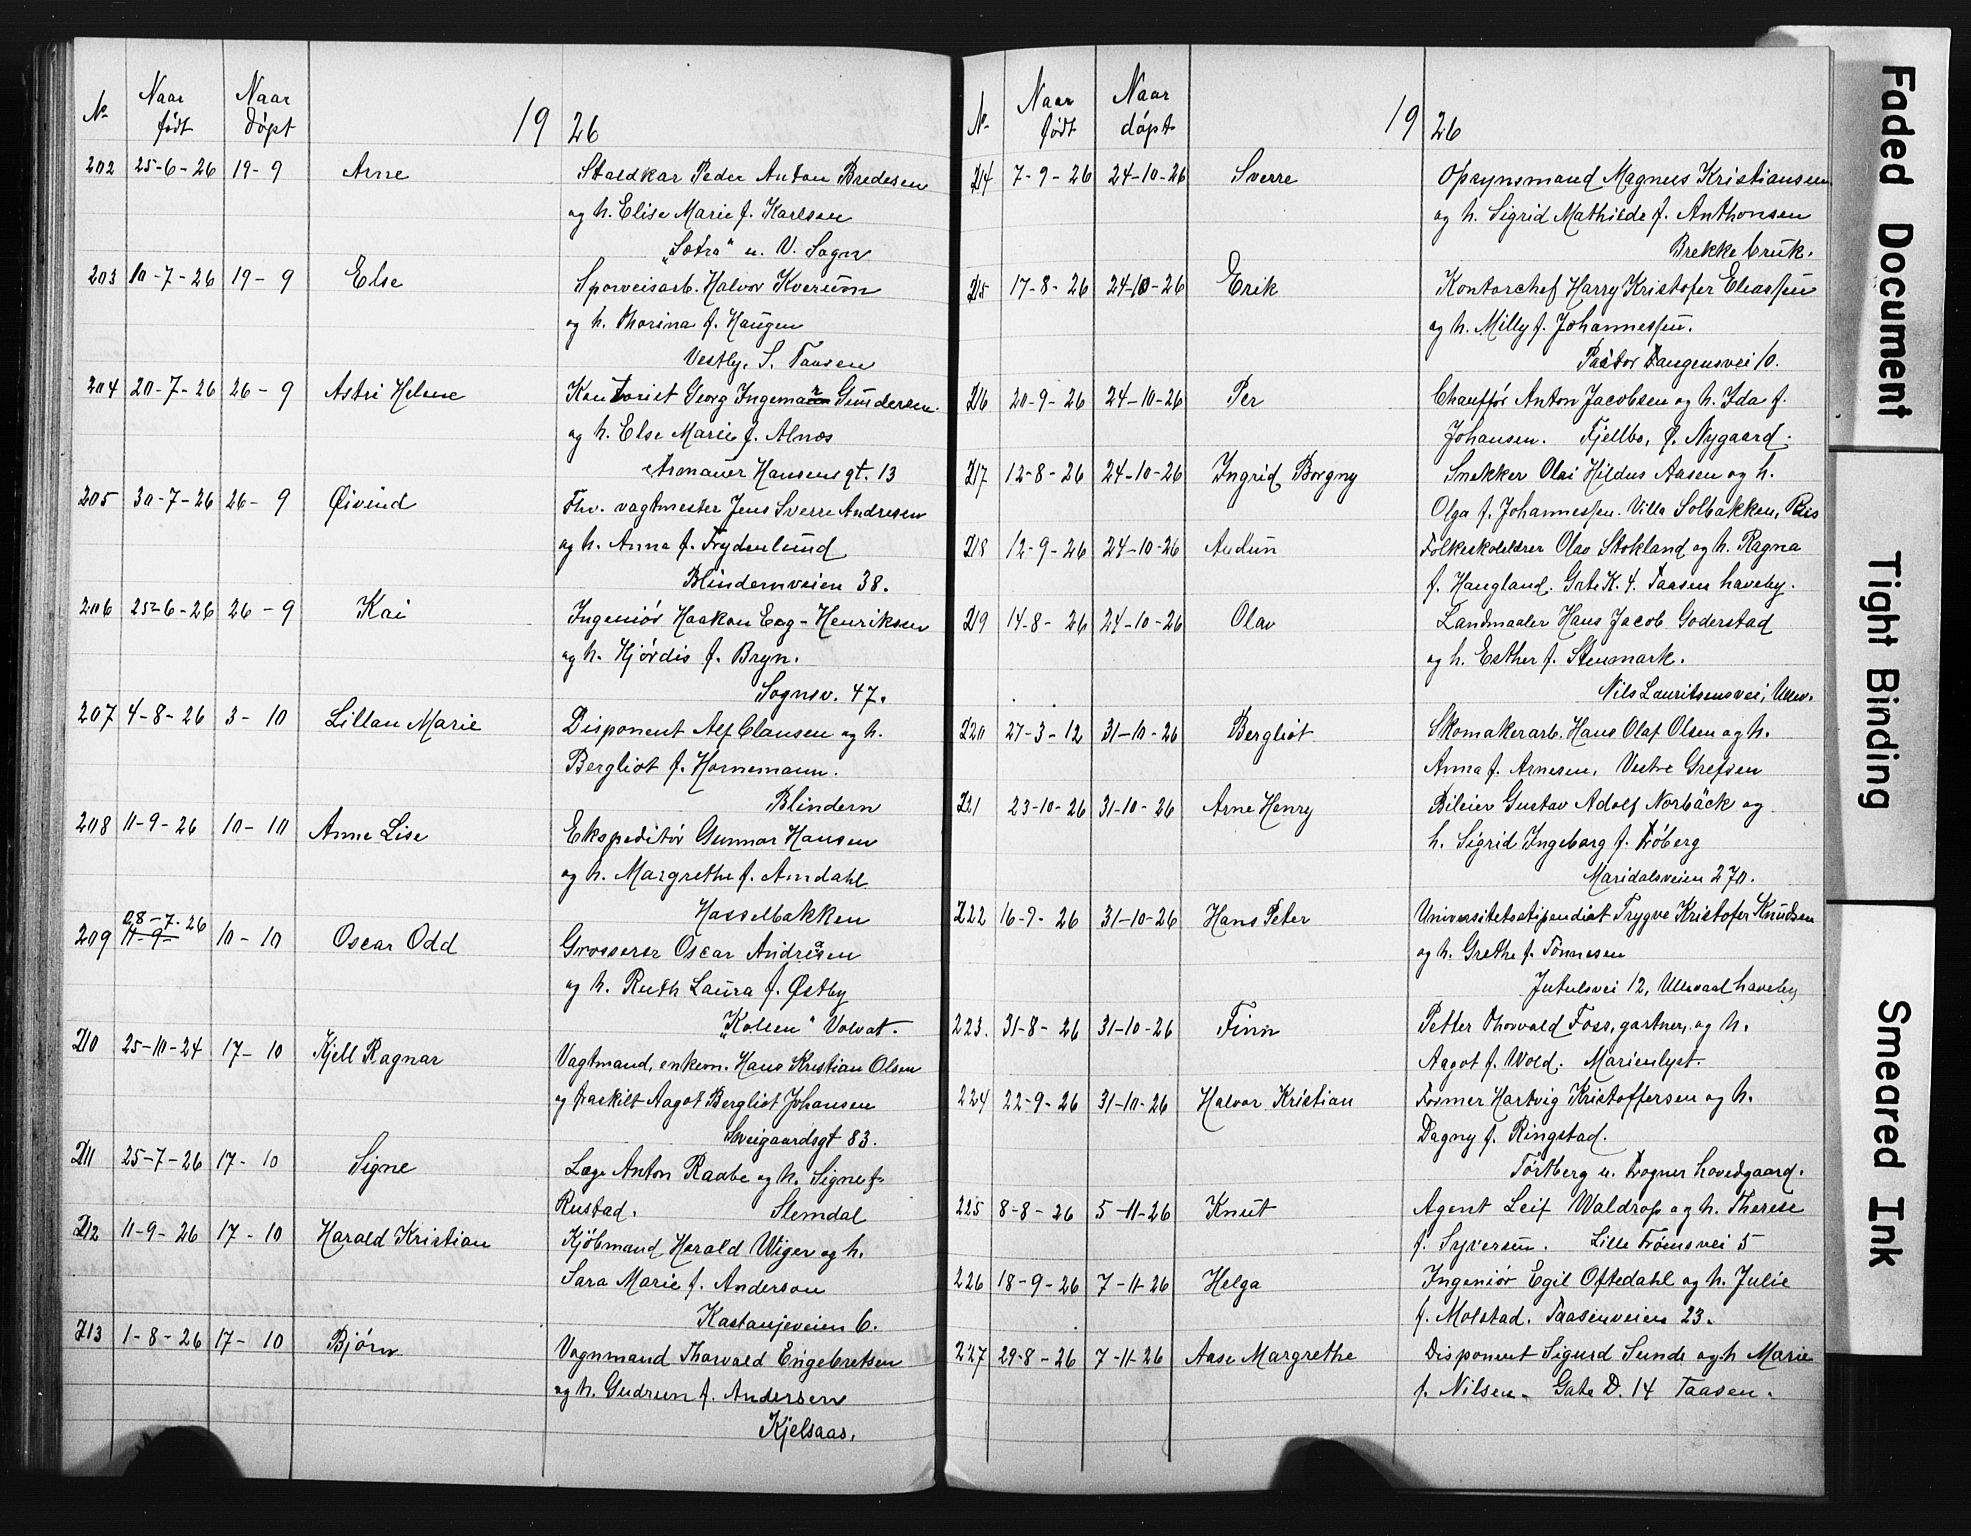 Nr Naar født Naar døpt 19 26
202 25-6-26 19-9 Arne Staldkar Peder Anton Bredesen
og h. Elise Marie f. Karlsen
"Sætra" u. V. Sogn
203 10-7-26 19-9 Else Sporveisarb. Halvor Kverum
og h. Thorina f. Haugen
Vestby, S. Taasen
204 20-7-26 26-9 Astri Helene Kontorist Georg Ingemar Gundersen
og h. Else Marie f. Alnæs
Armauer Hansens gt. 13
205 30-7-26 26-9 Øivind Fhv. vagtmester Jens Sverre Andresen
og h. Anna f. Frydenlund
Blindernveien 38.
206 25-6-26 26-9 Kai Ingeniør Haakon Eeg-Henriksen
og h. Hjørdis f. Bryn.
Sognsv. 47.
207 4-8-26 3-10 Lillan Marie Disponent Alf Clausen og h.
Bergliot f. Hornemann.
Blindern
208 11-9-26 10-10 Anne Lise Ekspeditør Gunnar Hansen
og h. Margrethe f. Amdahl
Hasselbakken
08-7-26
209 11-9- 10-10 Oscar Odd Grosserer Oscar Andreasen
og h. Ruth Laura f. Østby
"Kollen" Volvat.
210 25-10-24 17-10 Kjell Ragnar Vagtmand, enkem. Hans Kristian Olsen
og fraskilt Aagot Bergliot Johansen
Sweigaardsgt 83.
211 25-7-26 17-10 Signe Læge Anton Raabe og h. Signe f.
Rustad. Slemdal
212 11-9-26 17-10 Harald Kristian Kjøbmand Harald Wiger og h.
Sara Marie f. Anderson
Kastanjeveien 6.
213 1-8-26 17-10 Bjørn Vognmand Thorvald Engebretsen
og h. Gudrun f. Andersen
Kjelsaas.
Nr. Naar født Naar døpt 19 26
214 7-9-26 24-10-26 Sverre Opsynsmand Magnus Kristiansen
og h. Sigrid Mathilde f. Anthonsen
Brekke bruk.
215 17-8-26 24-10-26 Erik Kontorchef Harry Kristofer Eliassen
og h. Milly f. Johannessen.
Pastor Fangensvei 10.
216 20-9-26 24-10-26 Per Chauffør Anton Jacobsen og h. Ida f.
Johansen. Fjellbo, Ø. Nygaard.
217 12-8-26 24-10-26 Ingrid Borgny Snekker Olai Hildus Aasen og h.
Olga f. Johannessen. Villa Solbakken, Ris
218 12-9-26 24-10-26 Audun Folkeskolelærer Olav Stokland og h. Ragna
f. Haugland. Gate K. 4. Taasen haveby.
219 14-8-26 24-10-26 Olav Landmaaler Hans Jacob Goderstad
og h. Esther f. Stenmark.
Nils Lauritsensvei, Ullev.
220 27-3-12 31-10-26 Bergliot Skomakerarb. Hans Olaf Olsen og h.
Anna f. Arnesen, Vestre Grefsen
221 23-10-26 31-10-26 Arne Henry Bileier Gustav Adolf Norbäck og
h. Sigrid Ingeborg f. Frøberg
Maridalsveien 270.
222 16-9-26 31-10-26 Hans Peter Universitetsstipendiat Trygve Kristofer Knudsen
og h. Grethe f. Tønnesen
Jutulsvei 12, Ullevaal haveby
223. 31-8-26 31-10-26 Finn Petter Thorvald Foss, gartner, og h.
Aagot f. Wold. Marienlyst.
224 22-9-26 31-10-26 Halvor Kristian Former Hartvig Kristoffersen og h.
Dagny f. Ringstad.
Tørtberg u. Frogner hovedgaard.
225 8-8-26 5-11-26 Knut Agent Leif Waldrop og h. Therese
f. Syversen. Lille Frøensvei 5
226 18-9-26 7-11-26 Helga Ingeniør Egil Oftedahl og h. Julie
f. Molstad. Taasenveien 23.
227 29-8-26 7-11-26 Aase Margrethe Disponent Sigurd Sunde og h Marie
f. Nilsen - Gate D. 14 Taasen.
Faded Document
Tight Binding
Smeared Ink